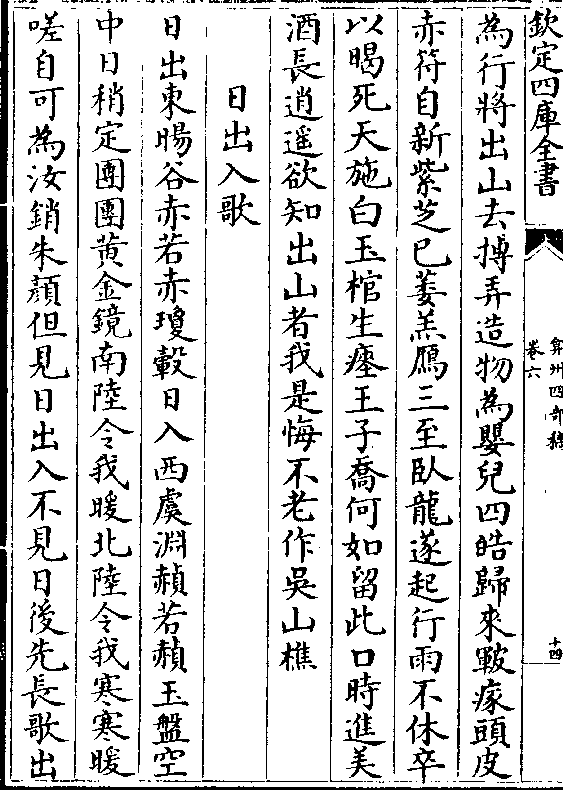 欽定四庫全書
弇州四部稿
卷六
十四
為行將出山去摶弄造物為嬰兒四皓歸來皺瘃頭皮
赤符自新紫芝已萎羔鴈三至臥龍遂起行雨不休卒
以暍死天施白玉棺生瘞王子喬何如留此口時進美
酒長逍遥欲知出山者我是悔不老作吳山樵
日出入歌
日出東暘谷赤若赤瓊轂日入西虞淵赬若赬玉盤空
中日稍定團團黄金鏡南陸令我暖北陸令我寒寒暖
嗟自可為汝銷朱顔但見日出入不見日後先長歌出